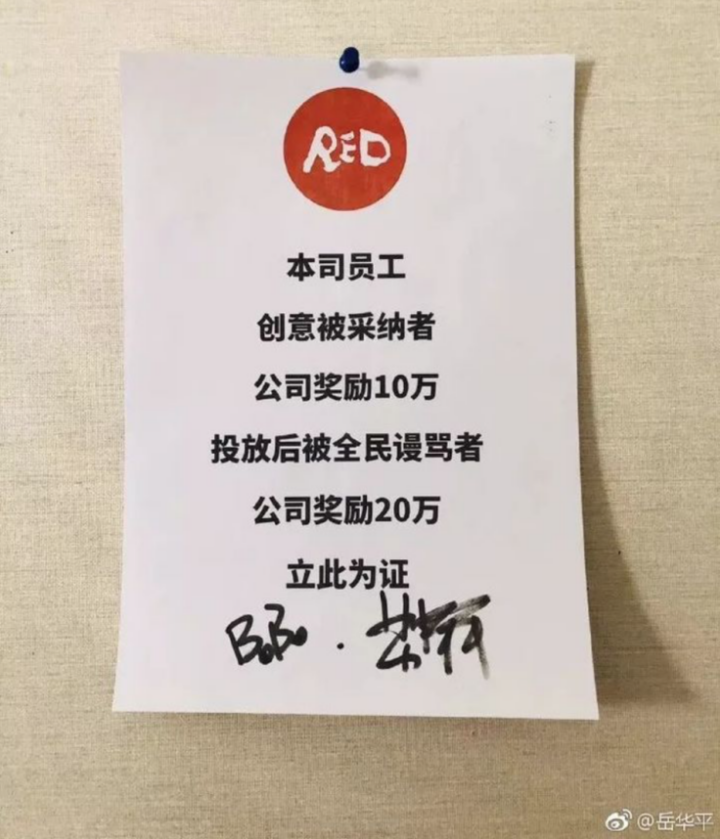 RED
本司员工
创意被采纳者
公司奖励10万
投放后被全民谩骂者
公司奖励20万
立此为证
BoBo ·
@岳华平